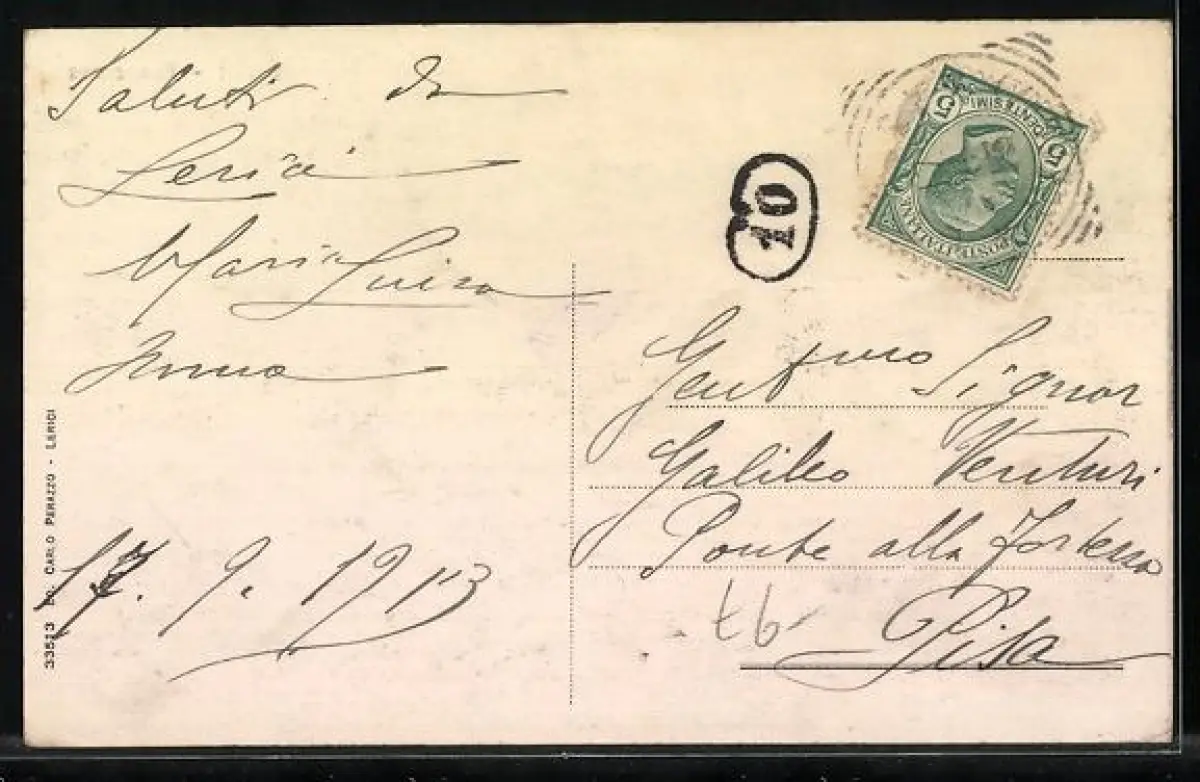 Saluti da
Lerici
Maria Luisa
17. 9. 1913
33513 ED. CARLO PERAZZO - LERICI
10
5 CENTESIMI 5
POSTE ITALIANE
Gent.mo Signor
Galileo Venturi
Ponte alla Fortezza
Pisa